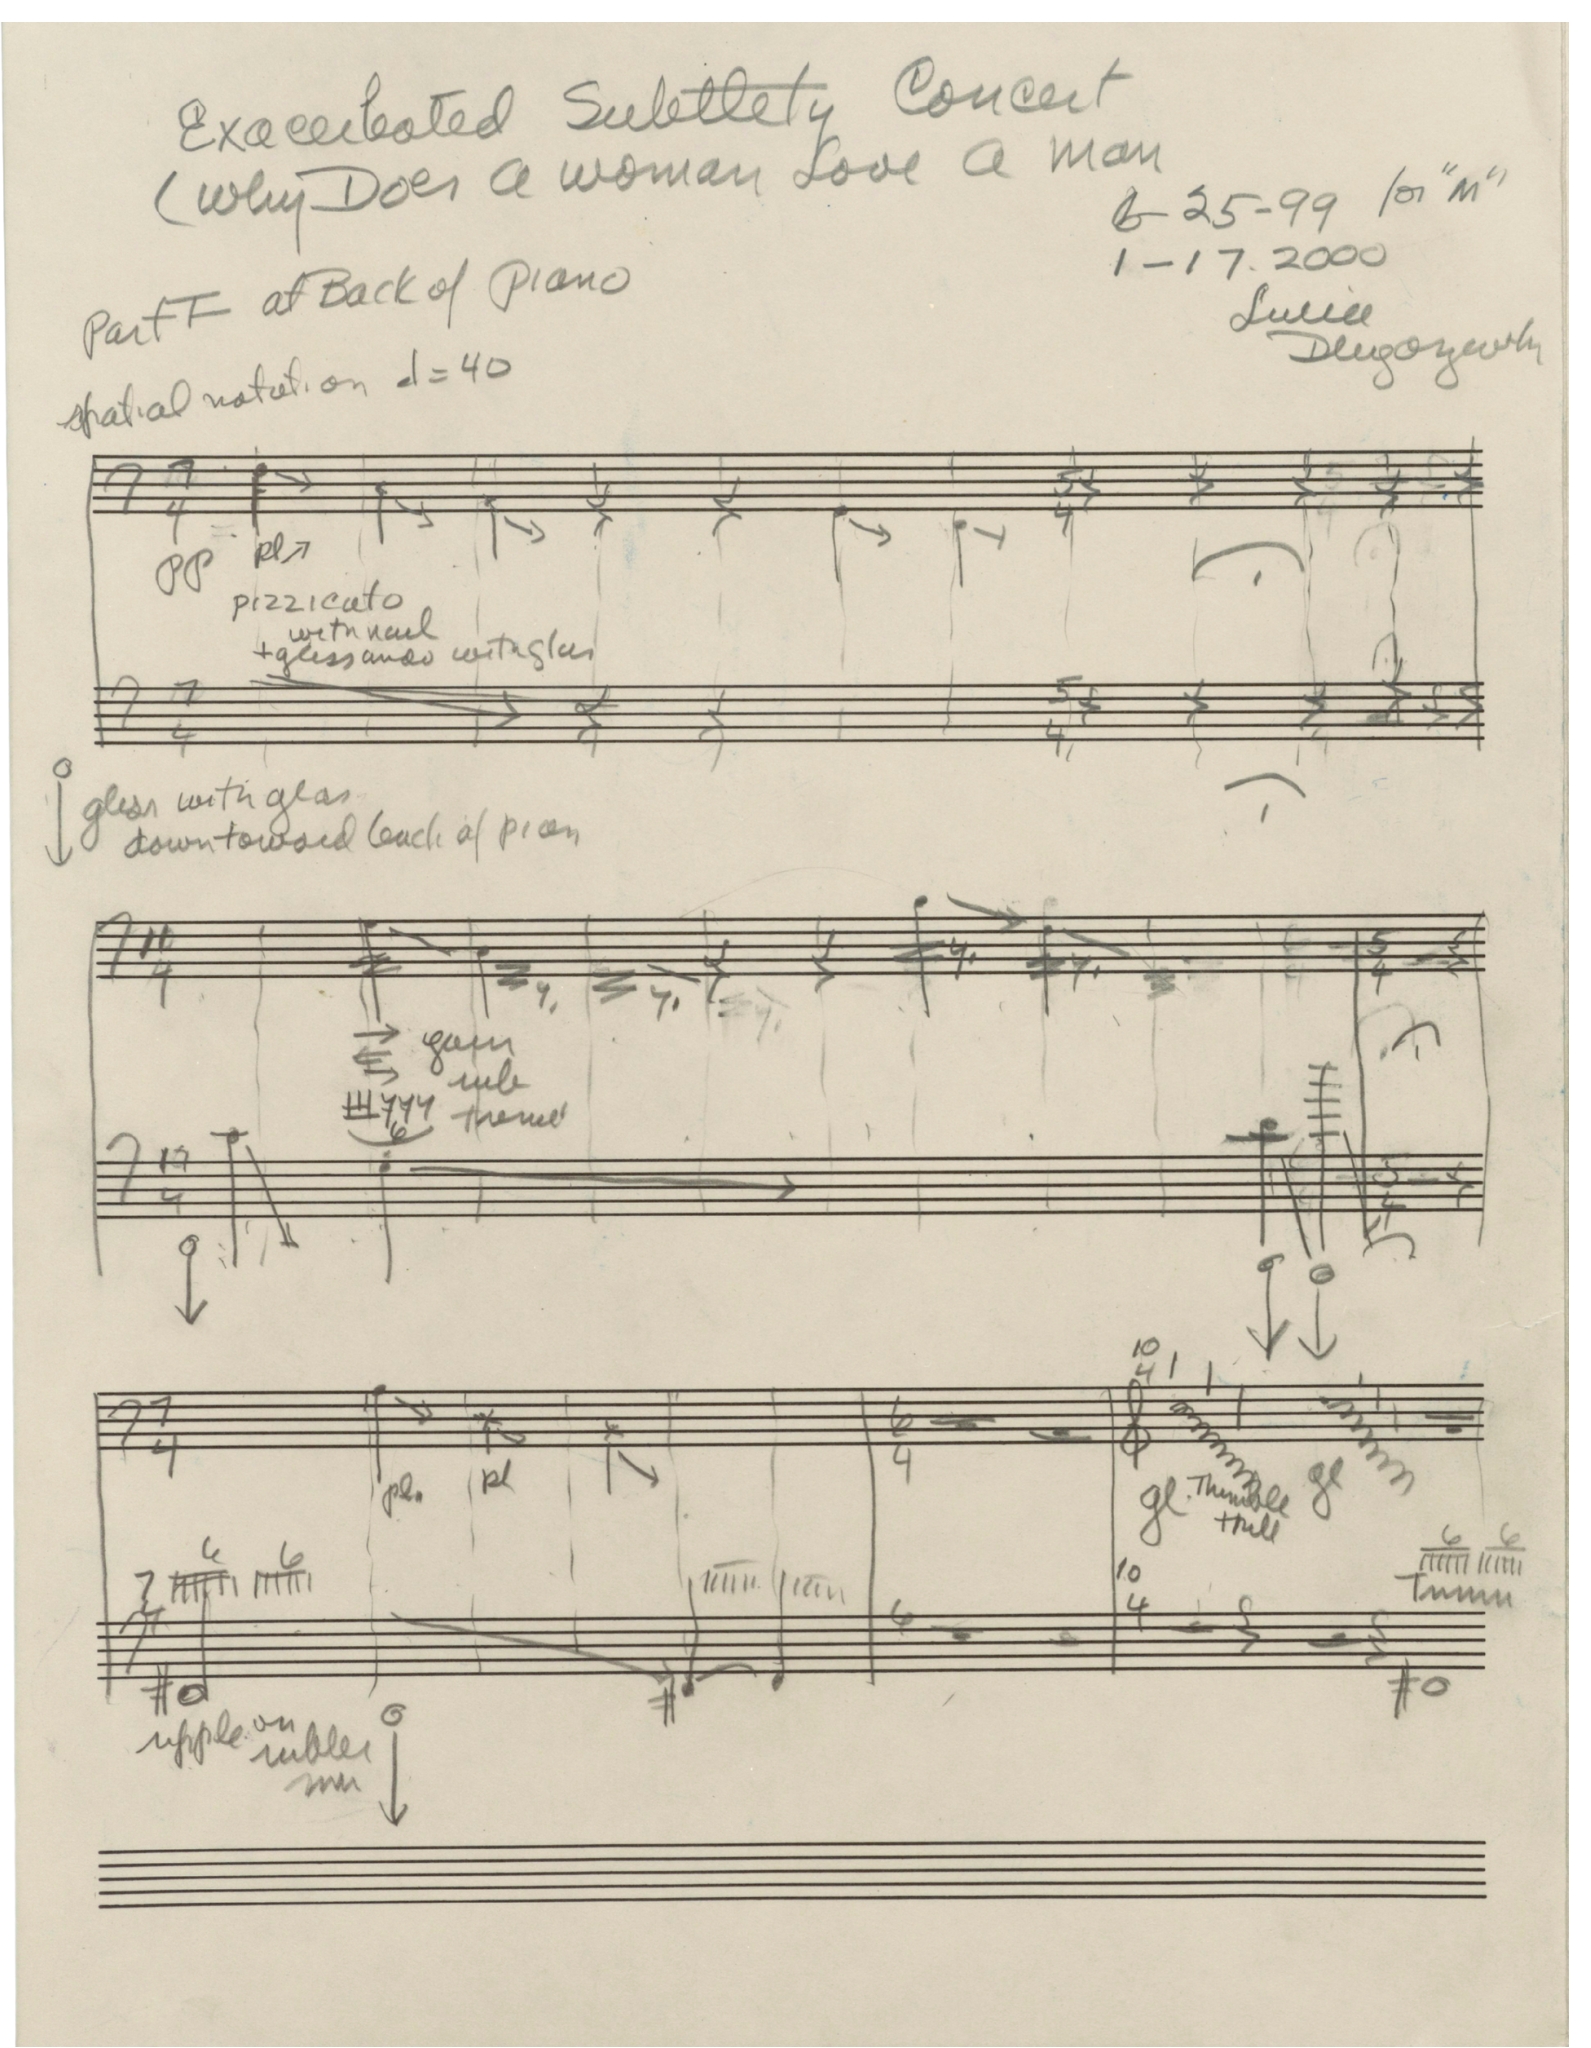 Exacerbated Subtlety Concert
(Why Does a woman Love a man
25-99 for "M"
1-17.2000
Lucia
Dlugoszewski
Part I at Back of Piano
spatial notation d=40
7 4
5 4
pp
pizzicato
with nail
+glissando with glas
7 4
5 4
gliss with glas
down toward back of pian
11 4
5 4
6
4
5 4
7 4
pl.
pl
6 4
10 4
gl. Thimble
trill
gl
7
6 6
6
10 4
6 6
ripple on
rubber